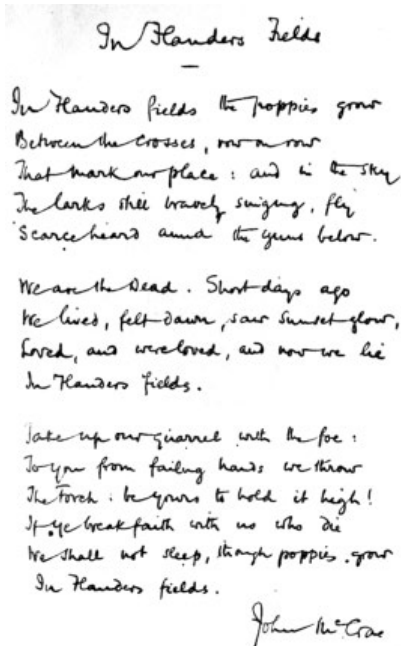 In Flanders Fields
In Flanders fields the poppies grow
Between the crosses, row on row
That mark our place : and in the sky
The larks still bravely singing, fly
Scarce heard amid the guns below.
We are the Dead. Short days ago
We lived, felt dawn, saw sunset glow,
Loved, and were loved, and now we lie
In Flanders fields.
Take up our quarrel with the foe :
To you from failing hands we throw
The Torch : be yours to hold it high!
If ye break faith with us who die
We shall not sleep, though poppies grow
In Flanders fields.
John McCrae